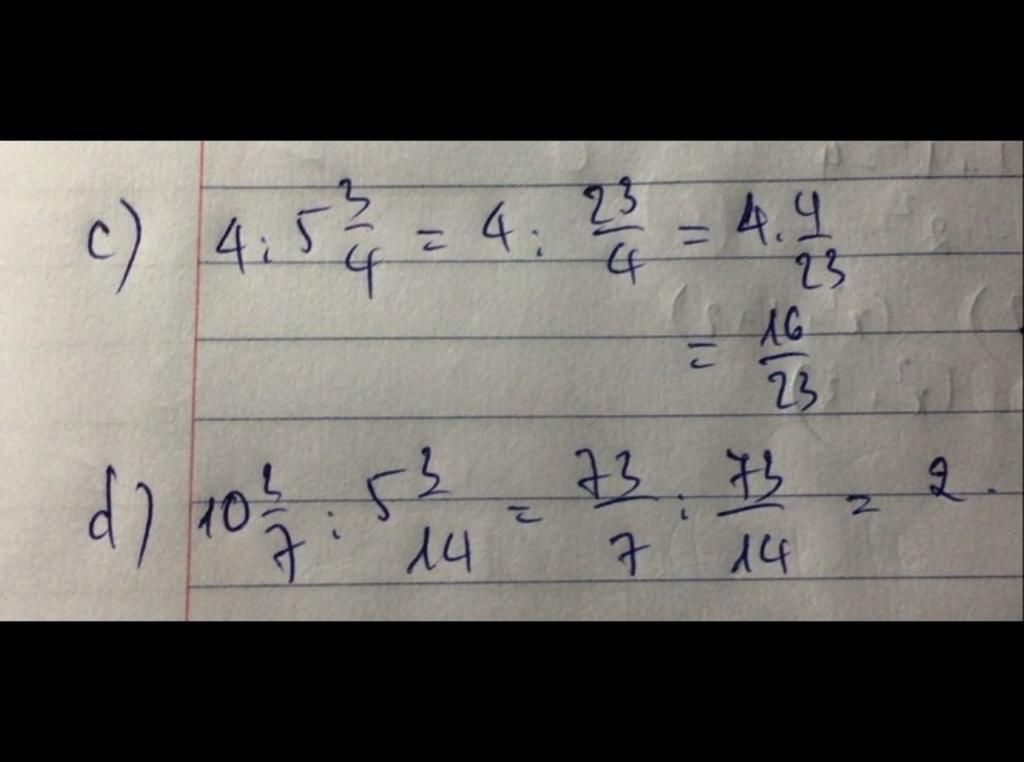 c) 4 : 5 3/4 = 4 : 23/4 = 4 . 4/23
= 16/23
d) 10 3/7 : 5 3/14 = 73/7 : 73/14 = 2.